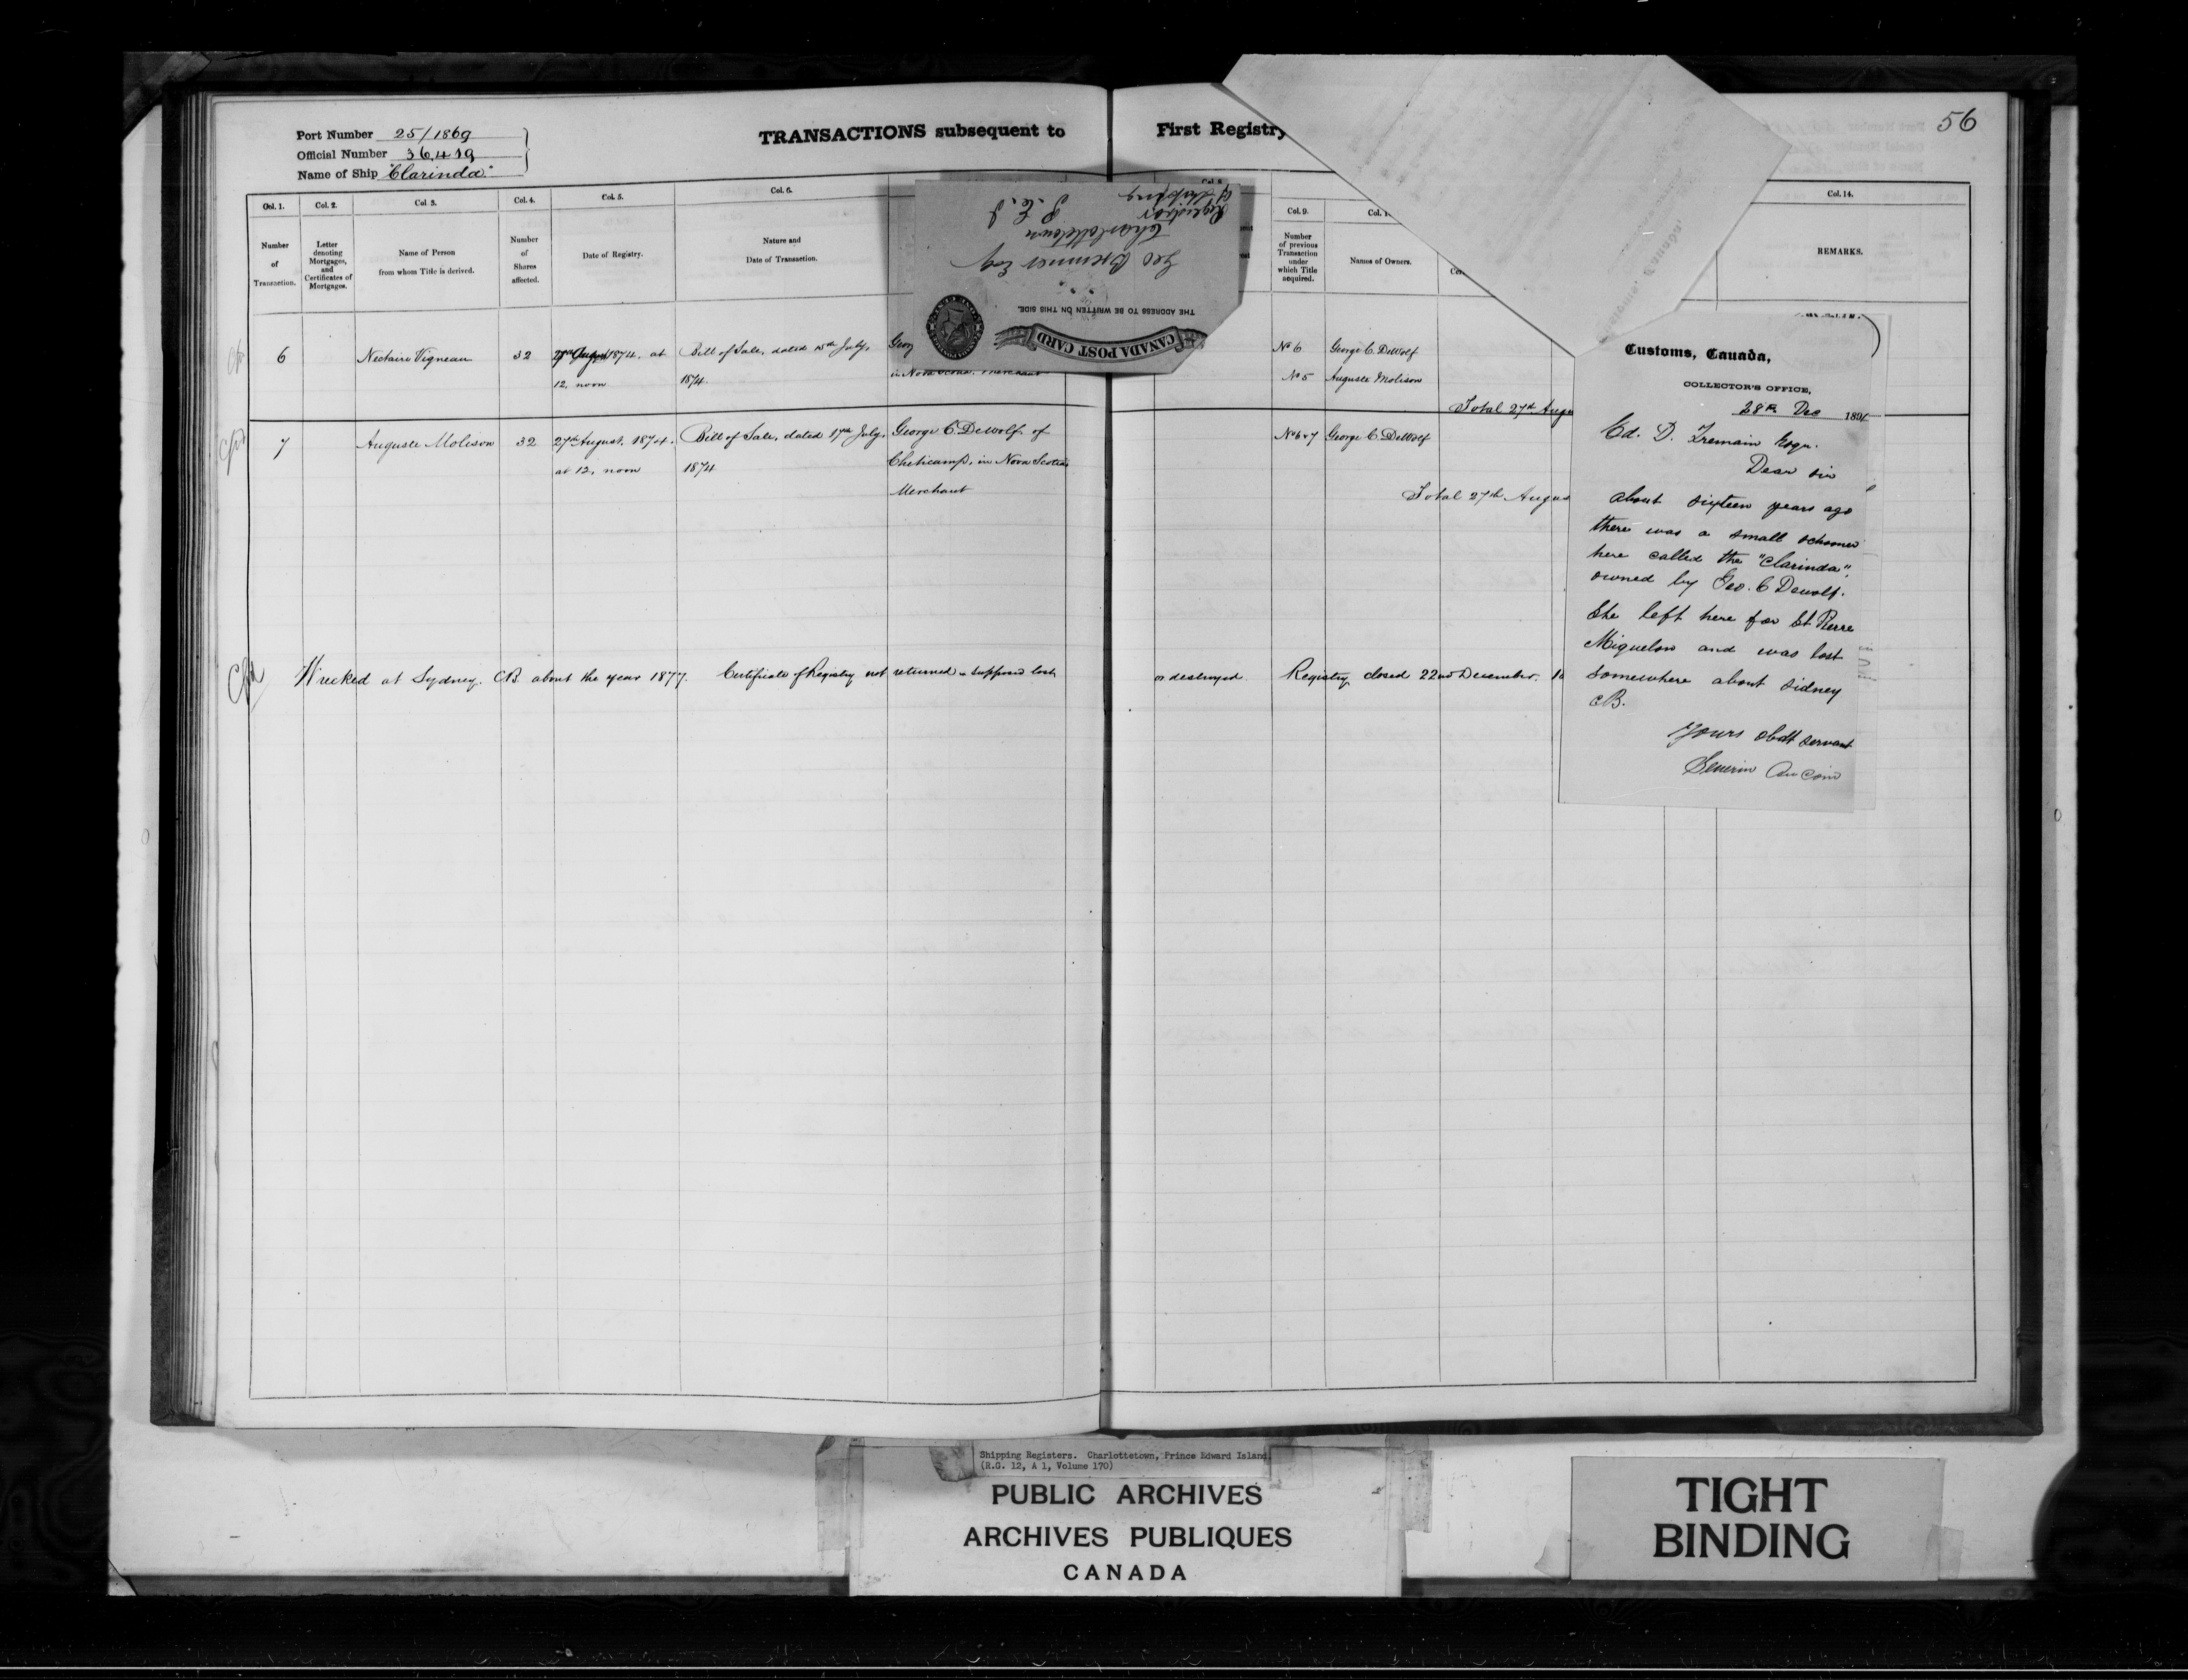 56
Port Number 25/1869
Official Number 36,419
Name of Ship "Clarinda"
TRANSACTIONS subsequent to First Registry
Col. 1. Col. 2. Col 3. Col. 4. Col. 5. Col. 6. Col. 8. Col. 9. Col. 14.
Number of Transaction.
Letter denoting Mortgages, and Certificates of Mortgages.
Name of Person from whom Title is derived.
Number of Shares affected.
Date of Registry.
Nature and Date of Transaction.
Number of previous Transaction under which Title acquired.
Names of Owners.
REMARKS.
CANADA POST CARD
THE ADDRESS TO BE WRITTEN ON THIS SIDE.
Geo Bremner Esq
Charlottetown
P. E. I
Registrar
of Shipping
6 Nectaire Vigneau 32 1874. at Bill of Sale, dated July, No 6 George C. DeWolf
12, noon 1874. in Nova Scotia. Merchant No 5 Auguste Molison
Total 27th
7 Auguste Molison 32 27th August, 1874. Bill of Sale, dated 17th July, George C DeWolf of No 6 & 7 George C DeWolf
at 12, noon 1874 Cheticamp, in Nova Scotia
Merchant
Total 27th
Wrecked at Sydney. CB. about the year 1877. Certificate of Registry not returned - supposed lost or destroyed. Registry closed 22nd December.
Customs, Canada,
COLLECTOR'S OFFICE,
28th Dec 1891
Ed. D. Tremain Esqr.
Dear Sir
About sixteen years ago
there was a small schooner
here called the "Clarinda",
owned by Geo. C Dewolf.
She left here for St. Pierre
Miquelon and was lost
somewhere about Sidney
CB.
Yours obdt servant
Severin Aucoin
Shipping Registers. Charlottetown, Prince Edward Island.
(R.G. 12, A 1, Volume 170)
PUBLIC ARCHIVES
ARCHIVES PUBLIQUES
CANADA
TIGHT
BINDING